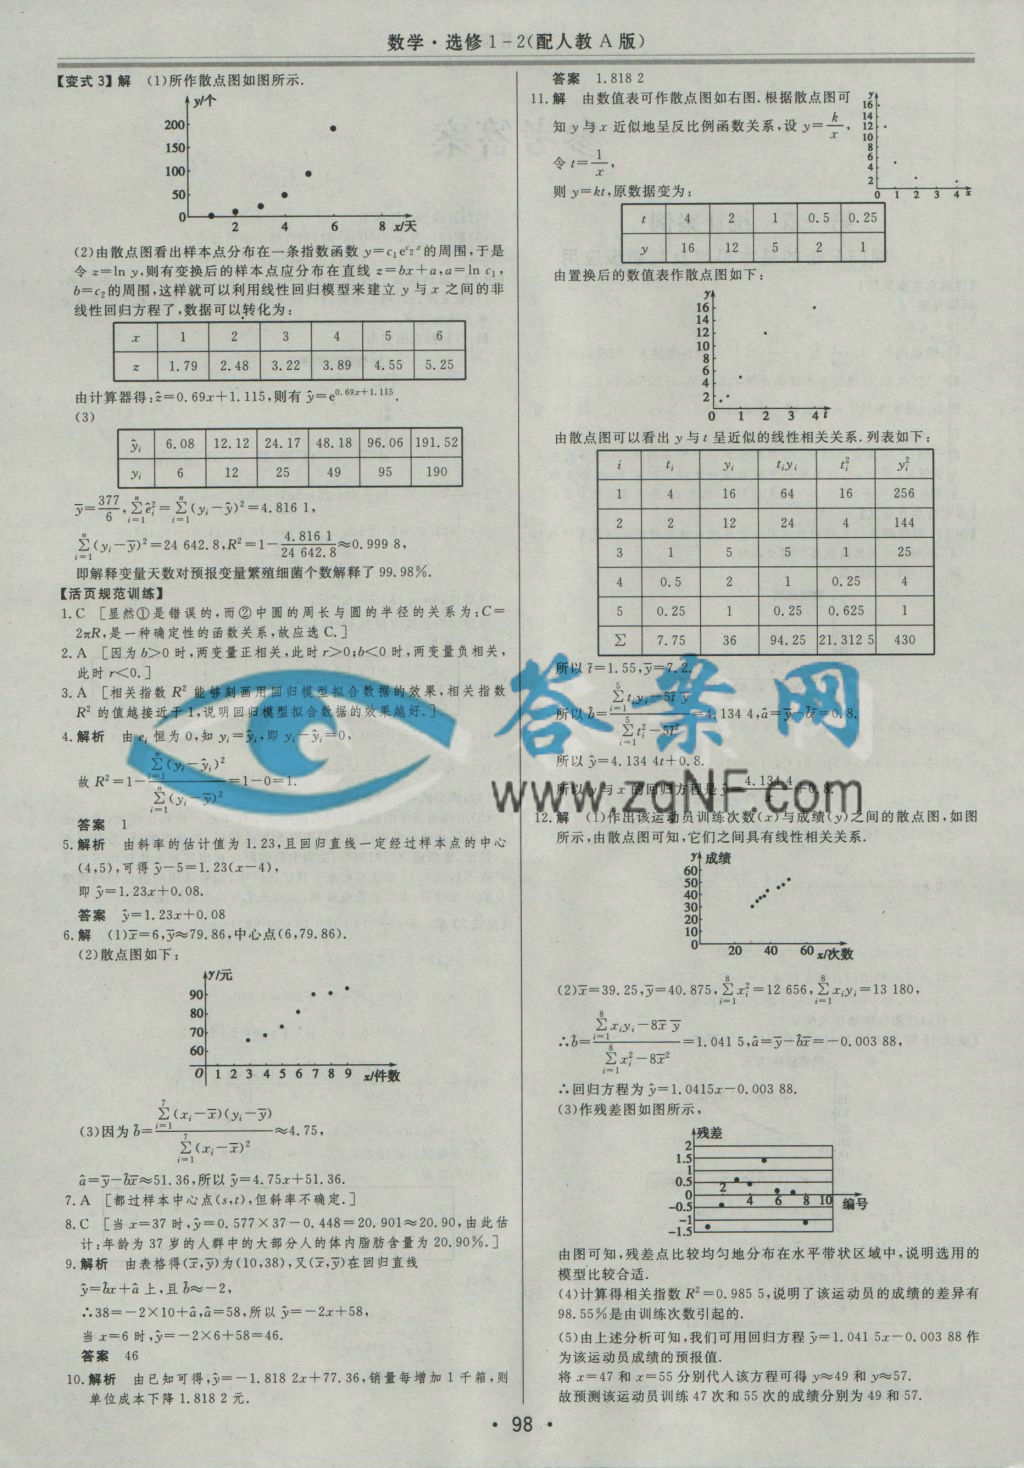 数学·选修1-2(配人教A版)
【变式3】解 (1)所作散点图如图所示.
y/个
200
150
100
50
0 2 4 6 8 x/天
(2)由散点图看出样本点分布在一条指数函数 y=c₁e^{c₂x}的周围,于是
令 z=ln y,则有变换后的样本点应分布在直线 z=bx+a,a=ln c₁,
b=c₂的周围,这样就可以利用线性回归模型来建立 y 与 x 之间的非
线性回归方程了,数据可以转化为:
x 1 2 3 4 5 6
z 1.79 2.48 3.22 3.89 4.55 5.25
由计算器得:ẑ=0.69x+1.115,则有 ŷ=e^{0.69x+1.115}.
(3)
ŷᵢ 6.08 12.12 24.17 48.18 96.06 191.52
yᵢ 6 12 25 49 95 190
ȳ=377/6,∑_{i=1}^{n}êᵢ²=∑_{i=1}^{n}(yᵢ-ŷ)²=4.816 1,
∑_{i=1}^{n}(yᵢ-ȳ)²=24 642.8,R²=1-4.816 1/24 642.8≈0.999 8,
即解释变量天数对预报变量繁殖细菌个数解释了 99.98%.
【活页规范训练】
1.C [显然①是错误的,而②中圆的周长与圆的半径的关系为:C=
2πR,是一种确定性的函数关系,故应选C.]
2.A [因为 b>0 时,两变量正相关,此时 r>0;b<0 时,两变量负相关,
此时 r<0.]
3.A [相关指数 R² 能够刻画用回归模型拟合数据的效果,相关指数
R² 的值越接近于1,说明回归模型拟合数据的效果越好.]
4.解析 由 eᵢ 恒为 0,知 yᵢ=ŷᵢ,即 yᵢ-ŷᵢ=0,
故 R²=1-∑_{i=1}^{n}(yᵢ-ŷᵢ)²/∑_{i=1}^{n}(yᵢ-ȳ)²=1-0=1.
答案 1
5.解析 由斜率的估计值为 1.23,且回归直线一定经过样本点的中心
(4,5),可得 ŷ-5=1.23(x-4),
即 ŷ=1.23x+0.08.
答案 ŷ=1.23x+0.08
6.解 (1)x̄=6,ȳ≈79.86,中心点(6,79.86).
(2)散点图如下:
y/元
90
80
70
60
O 1 2 3 4 5 6 7 8 9 x/件数
(3)因为 b̂=∑_{i=1}^{7}(xᵢ-x̄)(yᵢ-ȳ)/∑_{i=1}^{7}(xᵢ-x̄)²≈4.75,
â=ȳ-b̂x̄≈51.36,所以 ŷ=4.75x+51.36.
7.A [都过样本中心点(s,t),但斜率不确定.]
8.C [当 x=37 时,ŷ=0.577×37-0.448=20.901≈20.90,由此估
计:年龄为 37 岁的人群中的大部分人的体内脂肪含量为 20.90%.]
9.解析 由表格得(x̄,ȳ)为(10,38),又(x̄,ȳ)在回归直线
ŷ=b̂x+â 上,且 b̂≈-2,
∴38=-2×10+â,â=58,所以 ŷ=-2x+58,
当 x=6 时,ŷ=-2×6+58=46.
答案 46
10.解析 由已知可得,ŷ=-1.818 2x+77.36,销量每增加 1 千箱,则
单位成本下降 1.818 2 元.
答案 1.818 2
11.解 由数值表可作散点图如右图.根据散点图可
知 y 与 x 近似地呈反比例函数关系,设 y=k/x,
令 t=1/x,
则 y=kt,原数据变为:
y
16
14
12
10
8
6
4
2
0 1 2 3 4 x
t 4 2 1 0.5 0.25
y 16 12 5 2 1
由置换后的数值表作散点图如下:
y
16
14
12
10
8
6
4
2
0 1 2 3 4 t
由散点图可以看出 y 与 t 呈近似的线性相关关系.列表如下:
i tᵢ yᵢ tᵢyᵢ tᵢ² yᵢ²
1 4 16 64 16 256
2 2 12 24 4 144
3 1 5 5 1 25
4 0.5 2 1 0.25 4
5 0.25 1 0.25 0.625 1
∑ 7.75 36 94.25 21.312 5 430
所以 t̄=1.55,ȳ=7.2.
所以 b̂=∑_{i=1}^{5}tᵢyᵢ-5t̄ȳ/∑_{i=1}^{5}tᵢ²-5t̄²=4.134 4,â=ȳ-b̂t̄=0.8.
所以 ŷ=4.134 4t+0.8.
所以 y 与 x 的回归方程是 ŷ=4.134 4/x+0.8.
答案网
www.zqNF.com
12.解 (1)作出该运动员训练次数(x)与成绩(y)之间的散点图,如图
所示,由散点图可知,它们之间具有线性相关关系.
y 成绩
60
50
40
30
20
10
0 20 40 60 x/次数
(2)x̄=39.25,ȳ=40.875,∑_{i=1}^{8}xᵢ²=12 656,∑_{i=1}^{8}xᵢyᵢ=13 180,
∴b̂=∑_{i=1}^{8}xᵢyᵢ-8x̄ȳ/∑_{i=1}^{8}xᵢ²-8x̄²=1.041 5,â=ȳ-b̂x̄=-0.003 88,
∴回归方程为 ŷ=1.0415x-0.003 88.
(3)作残差图如图所示,
残差
2
1.5
1
0.5
0
-0.5
-1
-1.5
2 4 6 8 10 编号
由图可知,残差点比较均匀地分布在水平带状区域中,说明选用的
模型比较合适.
(4)计算得相关指数 R²=0.985 5,说明了该运动员的成绩的差异有
98.55%是由训练次数引起的.
(5)由上述分析可知,我们可用回归方程 ŷ=1.041 5x-0.003 88 作
为该运动员成绩的预报值.
将 x=47 和 x=55 分别代入该方程可得 y≈49 和 y≈57.
故预测该运动员训练 47 次和 55 次的成绩分别为 49 和 57.
·98·